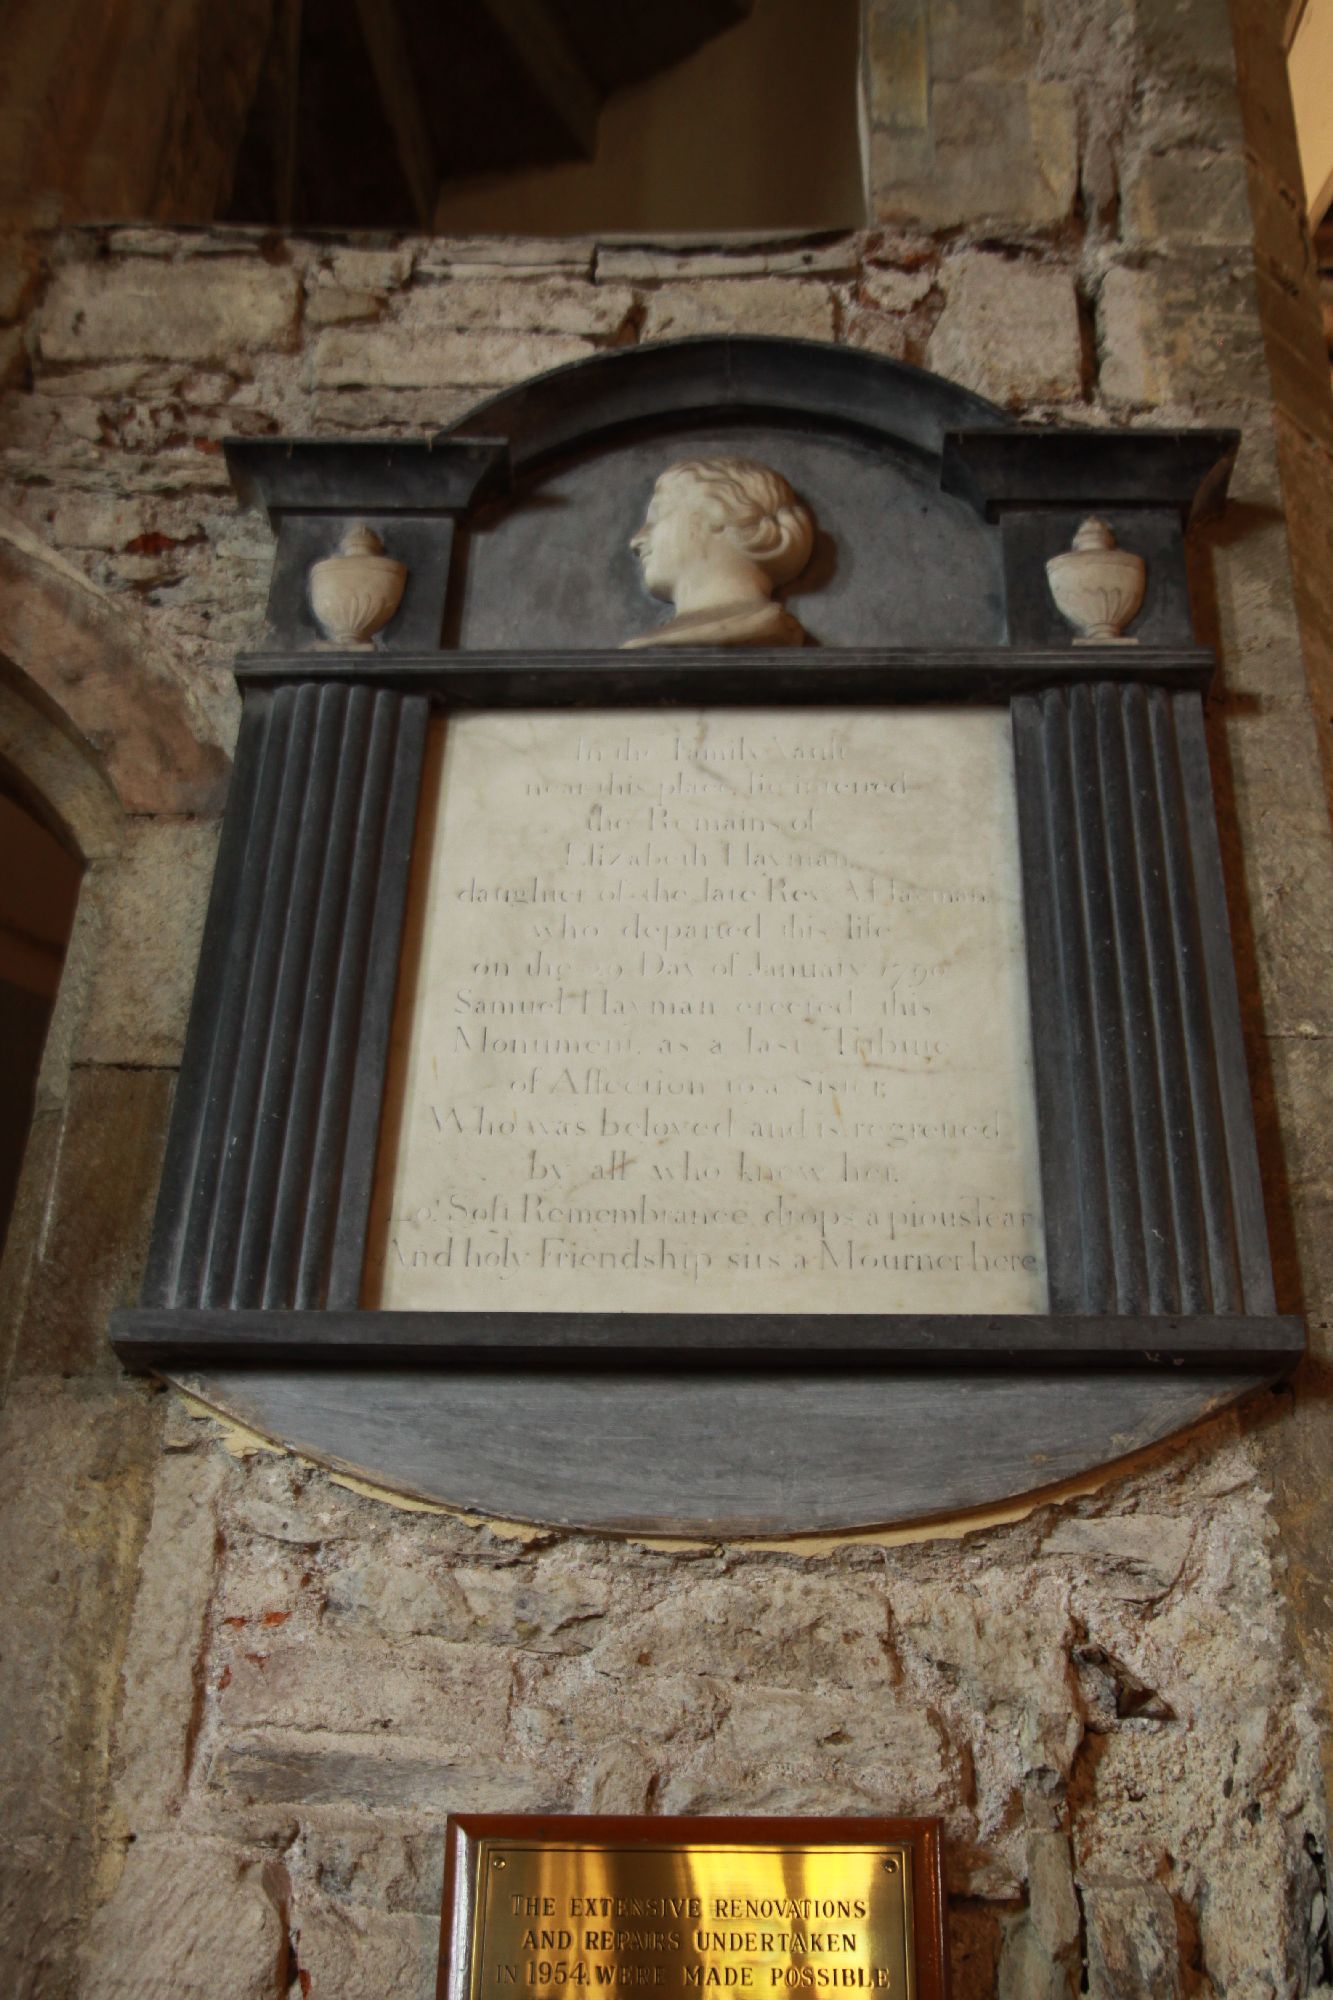 In the Family Vault
near this place, lie interred
the Remains of
Elizabeth Hayman,
daughter of the late Rev. A. Hayman,
who departed this life
on the 29 Day of January 1790
Samuel Hayman erected this
Monument, as a last Tribute
of Affection to a Sister,
Who was beloved and is regretted
by all who knew her.
Lo! Soft Remembrance drops a pious Tear
And holy Friendship sits a Mourner here
THE EXTENSIVE RENOVATIONS
AND REPAIRS UNDERTAKEN
IN 1954, WERE MADE POSSIBLE